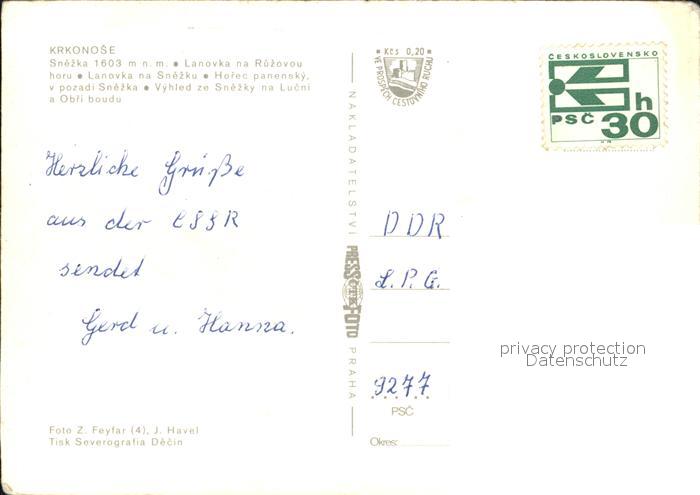 KRKONOŠE
Sněžka 1603 m n. m. • Lanovka na Růžovou
horu • Lanovka na Sněžku • Hořec panenský,
v pozadí Sněžka • Výhled ze Sněžky na Luční
a Obří boudu
Herzliche Grüße
aus der CSSR
sendet
Gerd u. Hanna.
Foto Z. Feyfar (4), J. Havel
Tisk Severografia Děčín
NAKLADATELSTVÍ
PRESSFOTO
ČTK
PRAHA
Kčs 0,20
VE PROSPĚCH CESTOVNÍHO RUCHU
ČESKOSLOVENSKO
h
PSČ 30
DDR
L.P.G.
9277
PSČ
Okres:
privacy protection
Datenschutz